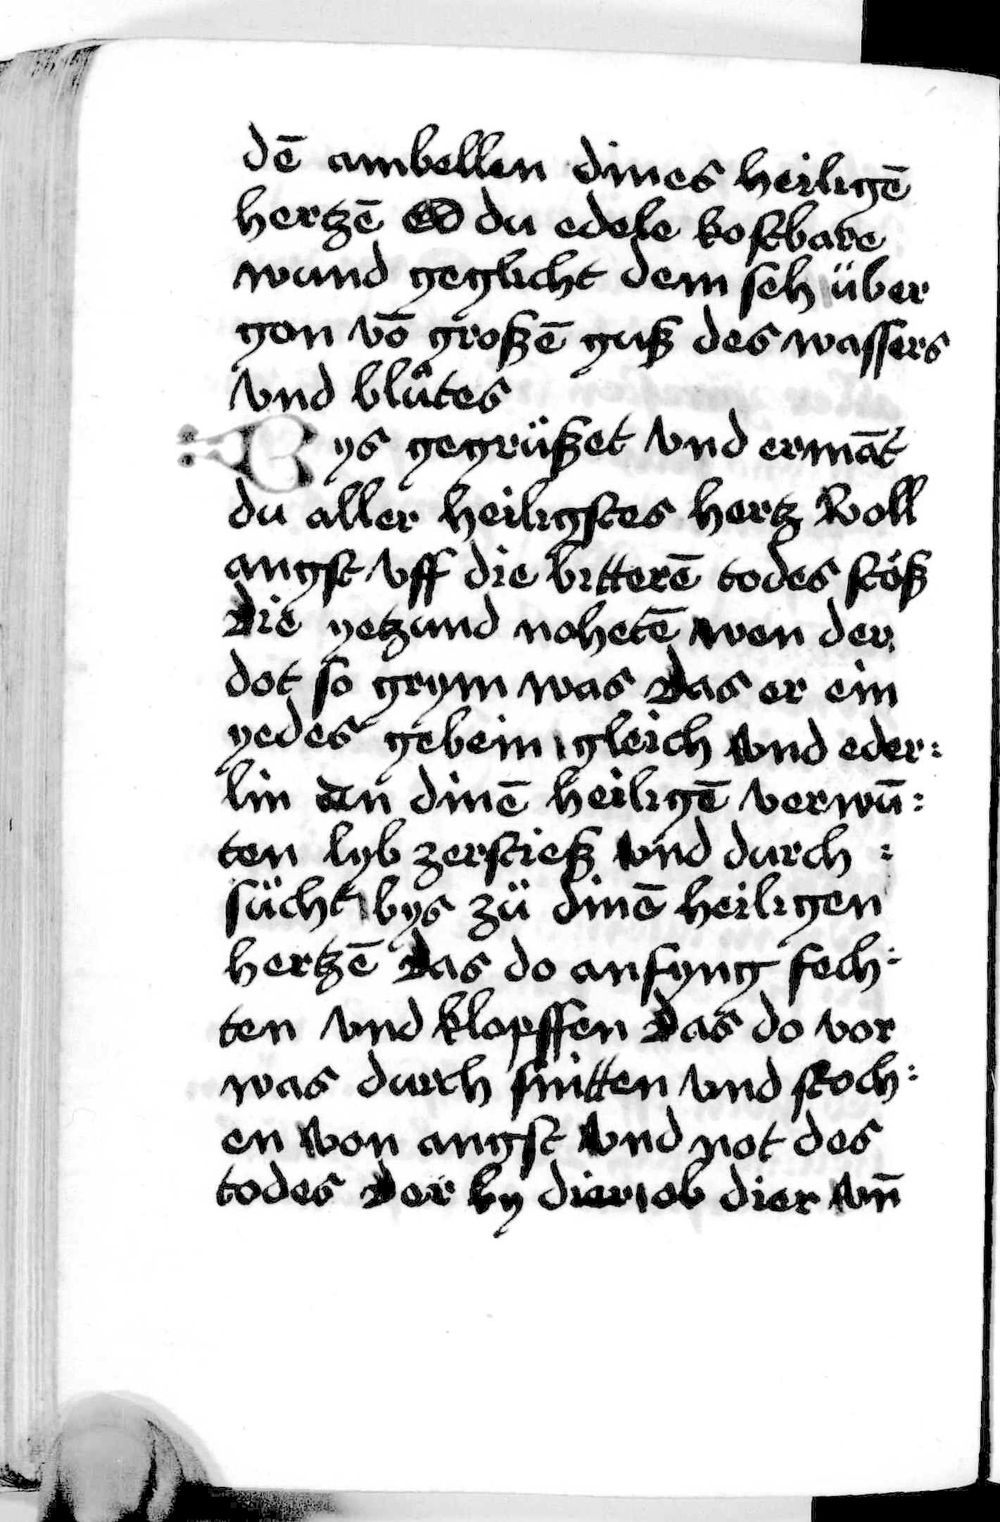 dē ambellen dines heiligē
hertzē O du edele kostbare
wund geglicht dem seh über
gon vō großē guß des wassers
vnd blůtes
Bys gegrüßet vnd ermāt
du aller heiligstes hertz voll
angst vff die bitterē todes stöß
Die yetzund nohetē wen der
dot so grym was Das er ein
yedes gebein gleich vnd eder:
lin an dinē heiligē verwū:
ten lyb zerstieß vnd durch:
sücht bys zü dinē heiligen
hertzē Das do anfyng fech:
ten vnd klopffen Das do vor
was durch snitten vnd stoch:
en von angst vnd not des
todes Der by dier ob dier vn̄